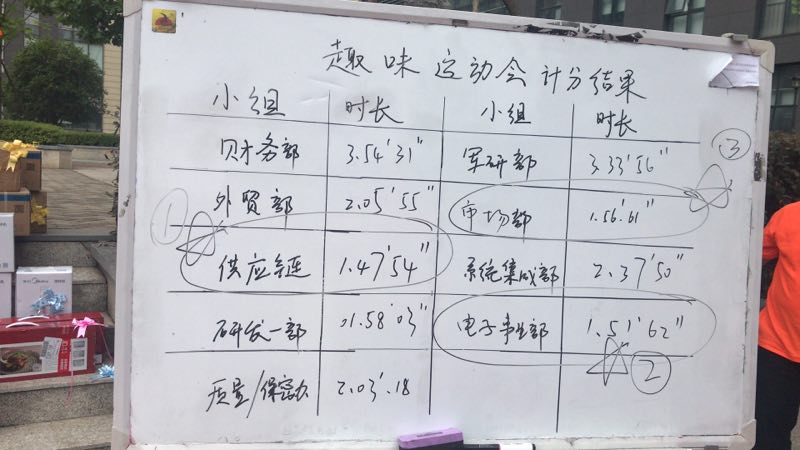 趣味运动会计分结果
小组 时长 小组 时长
财务部 3.54'31" 军研部 3.33'56"
外贸部 2.05'55" 市场部 1.56'61"
供应链 1.47'54" 系统集成部 2.37'50"
研发一部 01.58'03" 电子事业部 1.51'62"
质量/保密办 2.03'.18
①
②
③